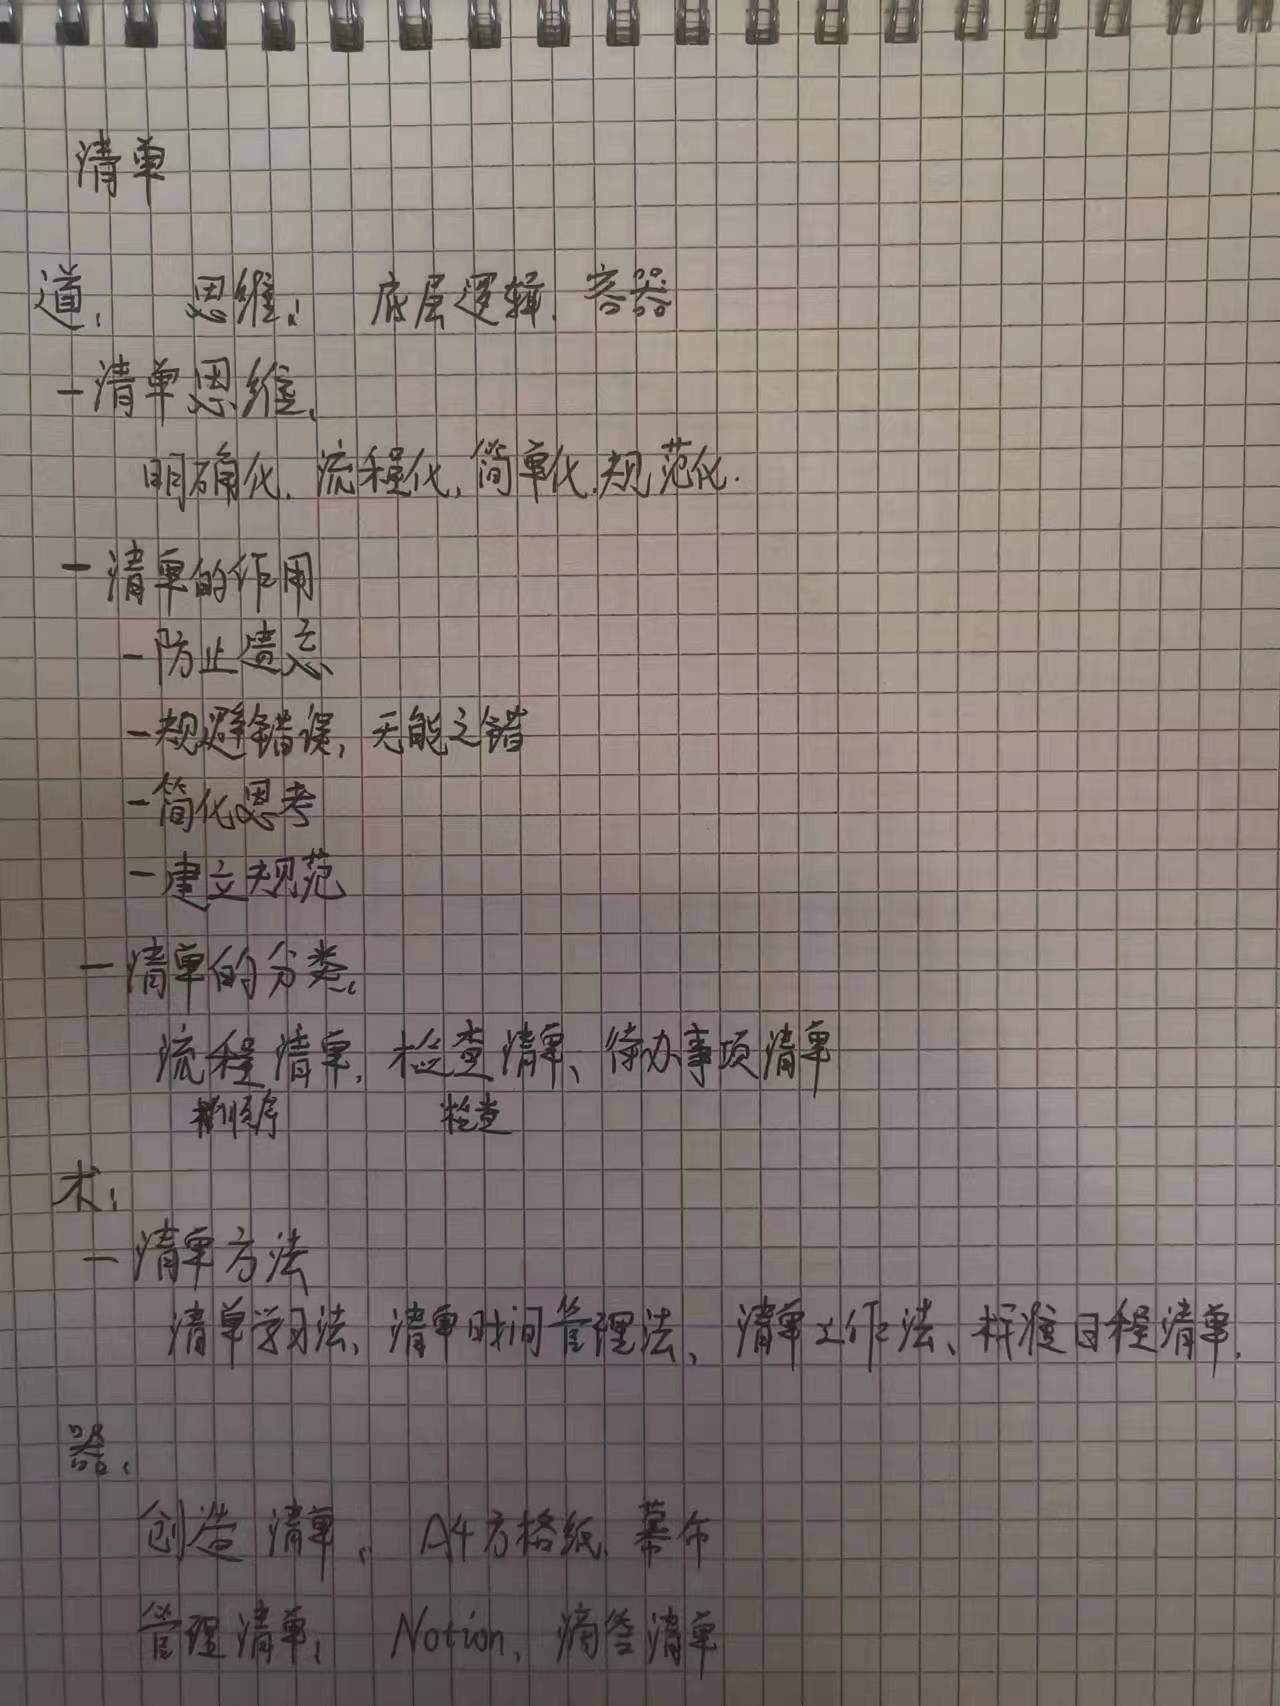 清单
道： 思维： 底层逻辑、容器
- 清单思维：
明确化、流程化、简单化、规范化.
- 清单的作用
- 防止遗忘
- 规避错误，无能之错
- 简化思考
- 建立规范
- 清单的分类：
流程清单、检查清单、待办事项清单
顺序 检查
术：
- 清单方法
清单学习法、清单时间管理法、清单工作法、标准日程清单.
器：
创造清单： A4方格纸、幕布
管理清单： Notion、滴答清单